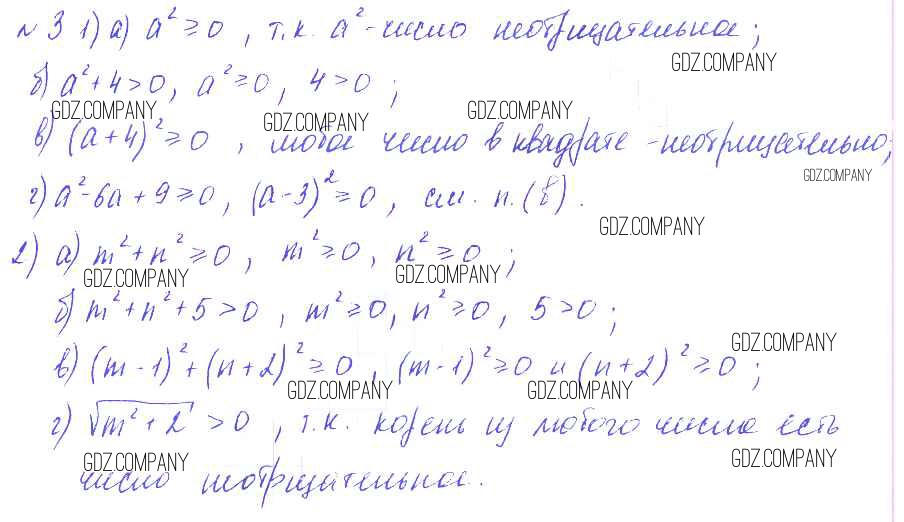 № 3 1) а) a² ≥ 0, т.к. a² - число неотрицательное;
б) a² + 4 > 0, a² ≥ 0, 4 > 0;
GDZ.COMPANY
GDZ.COMPANY GDZ.COMPANY GDZ.COMPANY
в) (a + 4)² ≥ 0, любое число в квадрате - неотрицательно;
GDZ.COMPANY
г) a² - 6a + 9 ≥ 0, (a - 3)² ≥ 0, см. п. (в).
GDZ.COMPANY
2) а) m² + n² ≥ 0, m² ≥ 0, n² ≥ 0;
GDZ.COMPANY GDZ.COMPANY
б) m² + n² + 5 > 0, m² ≥ 0, n² ≥ 0, 5 > 0;
GDZ.COMPANY
в) (m - 1)² + (n + 2)² ≥ 0, (m - 1)² ≥ 0 и (n + 2)² ≥ 0;
GDZ.COMPANY GDZ.COMPANY
г) √(m² + 2) > 0, т.к. корень из любого числа есть
GDZ.COMPANY GDZ.COMPANY
число неотрицательное.